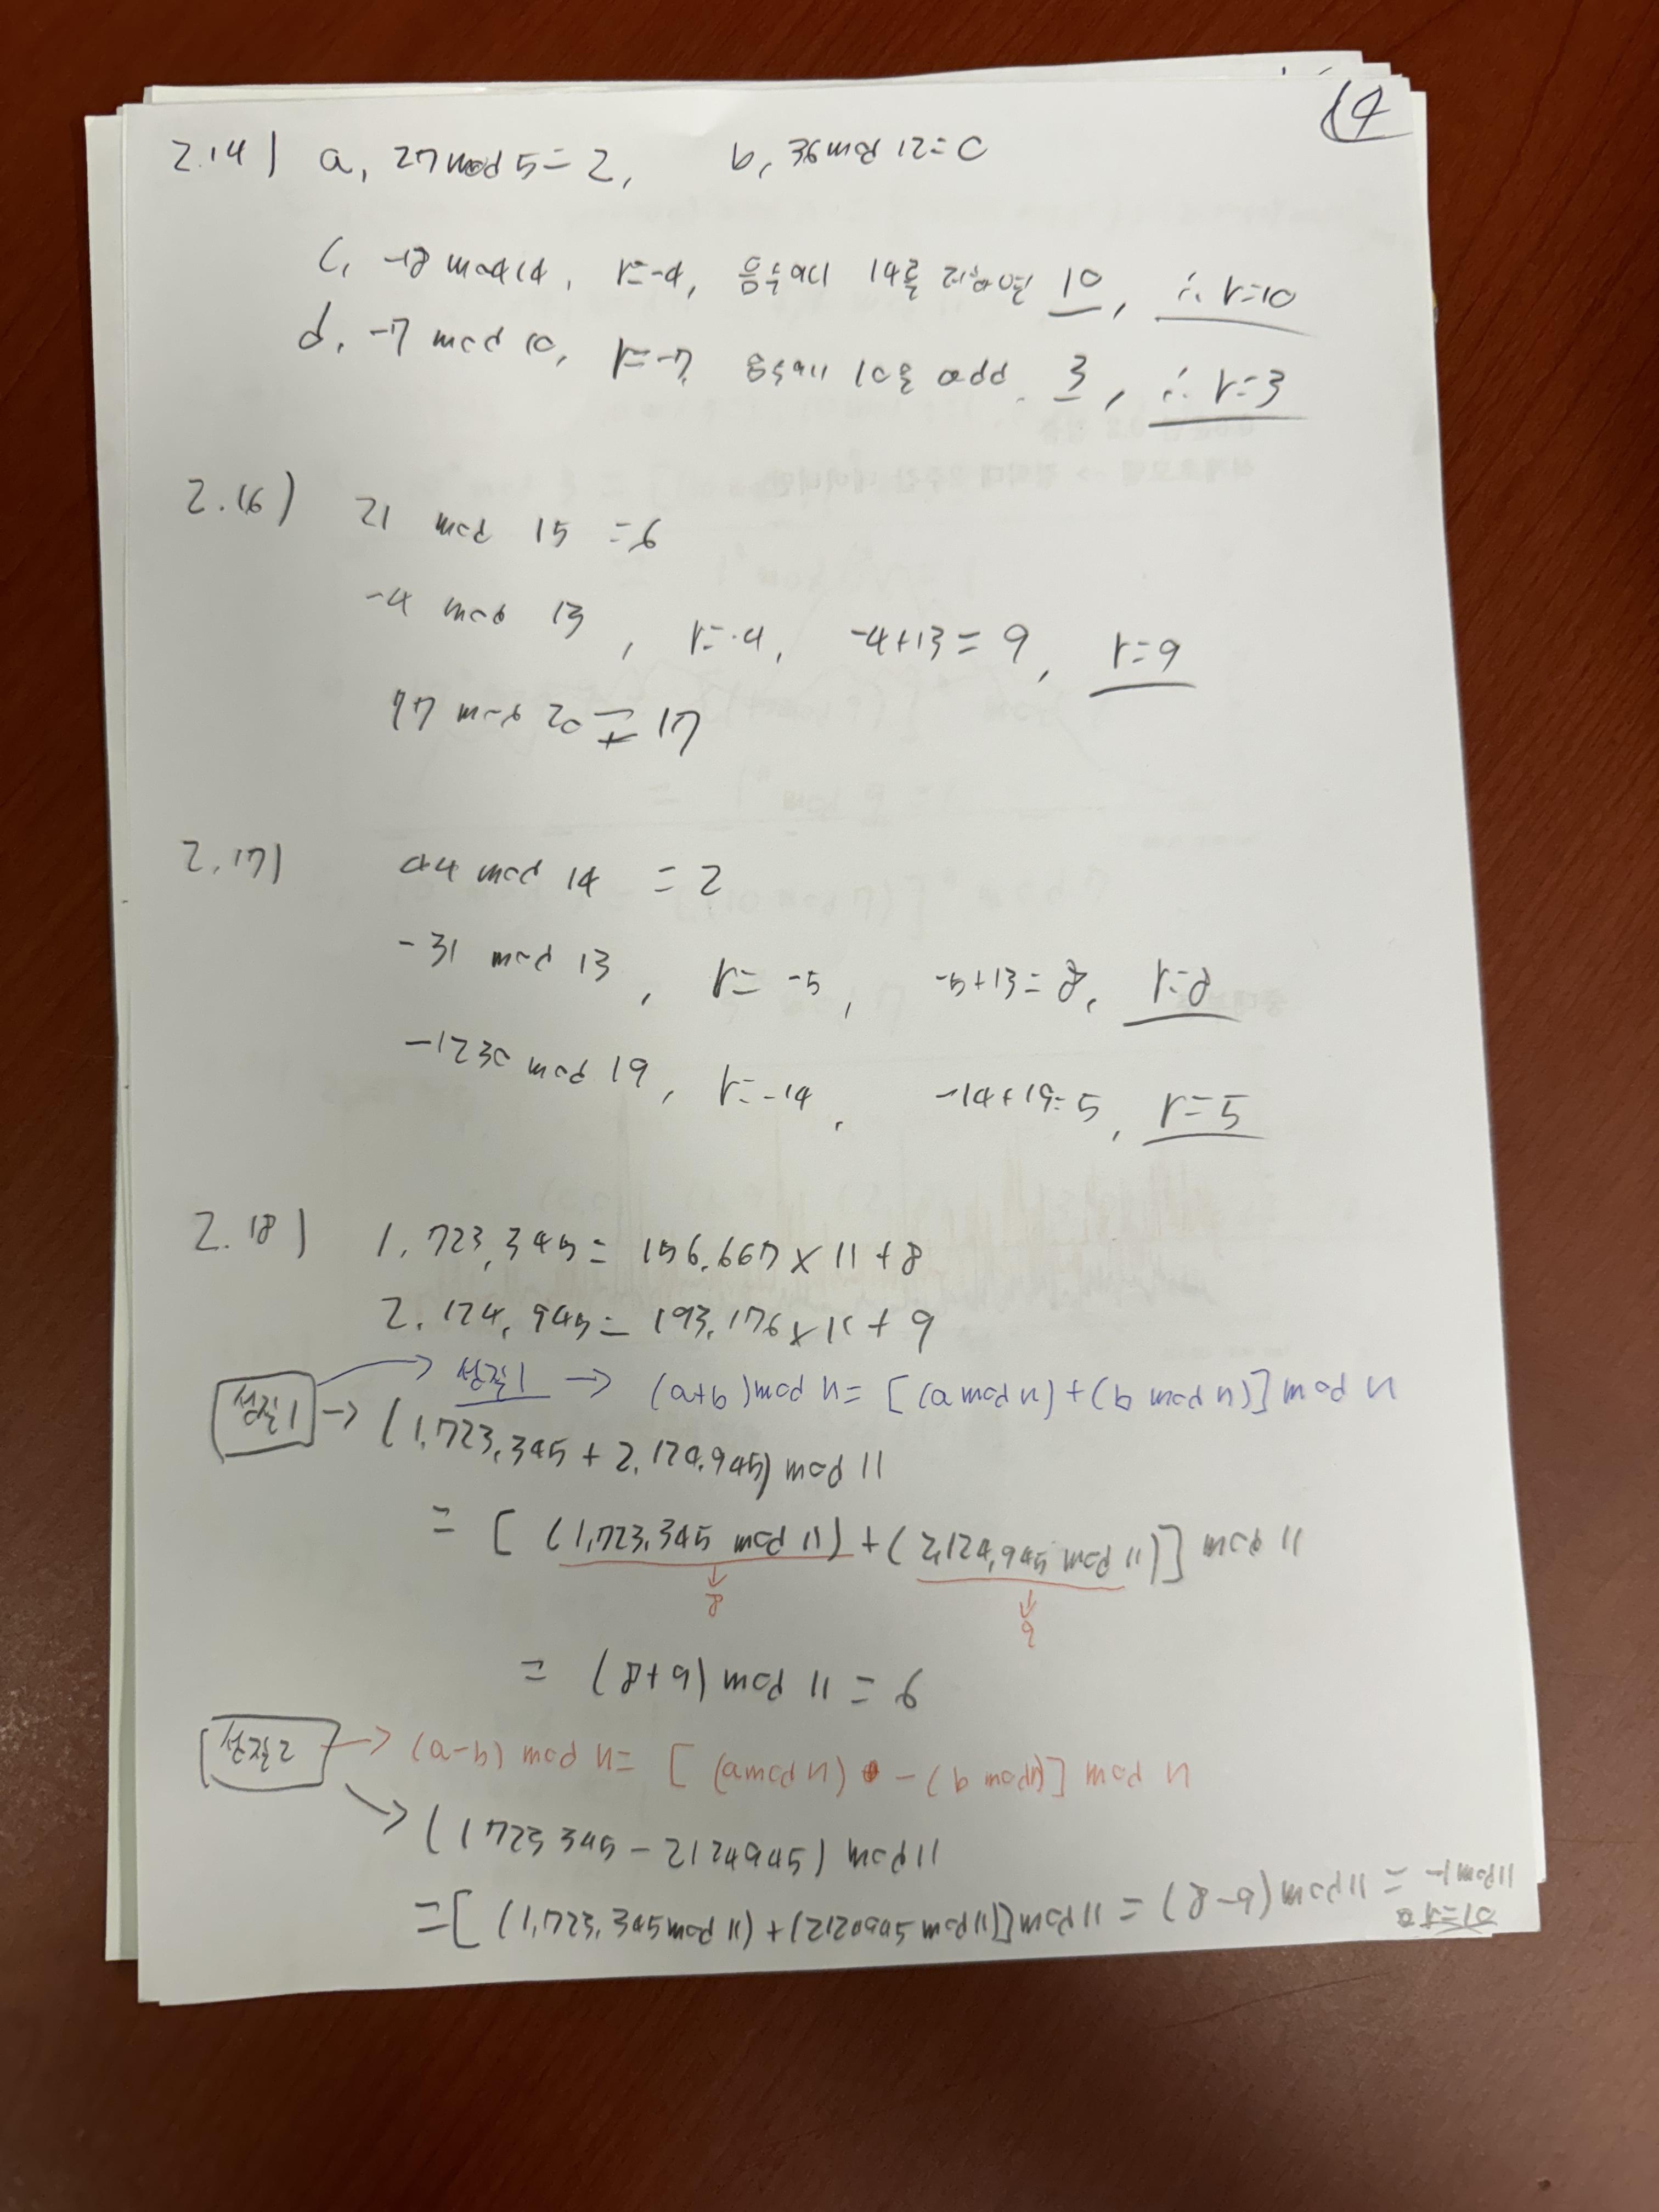 14
2.14) a, 27 mod 5 = 2, b, 36 mod 12 = 0
c, -18 mod 14, r=-4, 음수에 14를 더하면 10, ∴ r=10
d, -7 mod 10, r=-7, 음수에 10을 add 3, ∴ r=3
2.16) 21 mod 15 = 6
-4 mod 13, r=-4, -4+13=9, r=9
77 mod 20 = 17
2.17) 44 mod 14 = 2
-31 mod 13, r=-5, -5+13=8, r=8
-1230 mod 19, r=-14, -14+19=5, r=5
2.18) 1,723,345 = 156,667 × 11 + 8
2,124,945 = 193,176 × 11 + 9
성질1 → (a+b) mod n = [(a mod n) + (b mod n)] mod n
성질1 → (1,723,345 + 2,124,945) mod 11
= [(1,723,345 mod 11) + (2,124,945 mod 11)] mod 11
↓ 8 ↓ 9
= (8+9) mod 11 = 6
성질2 → (a-b) mod n = [(a mod n) - (b mod n)] mod n
→ (1723345 - 2124945) mod 11
= [(1,723,345 mod 11) + (2124945 mod 11)] mod 11 = (8-9) mod 11 = -1 mod 11
r=10